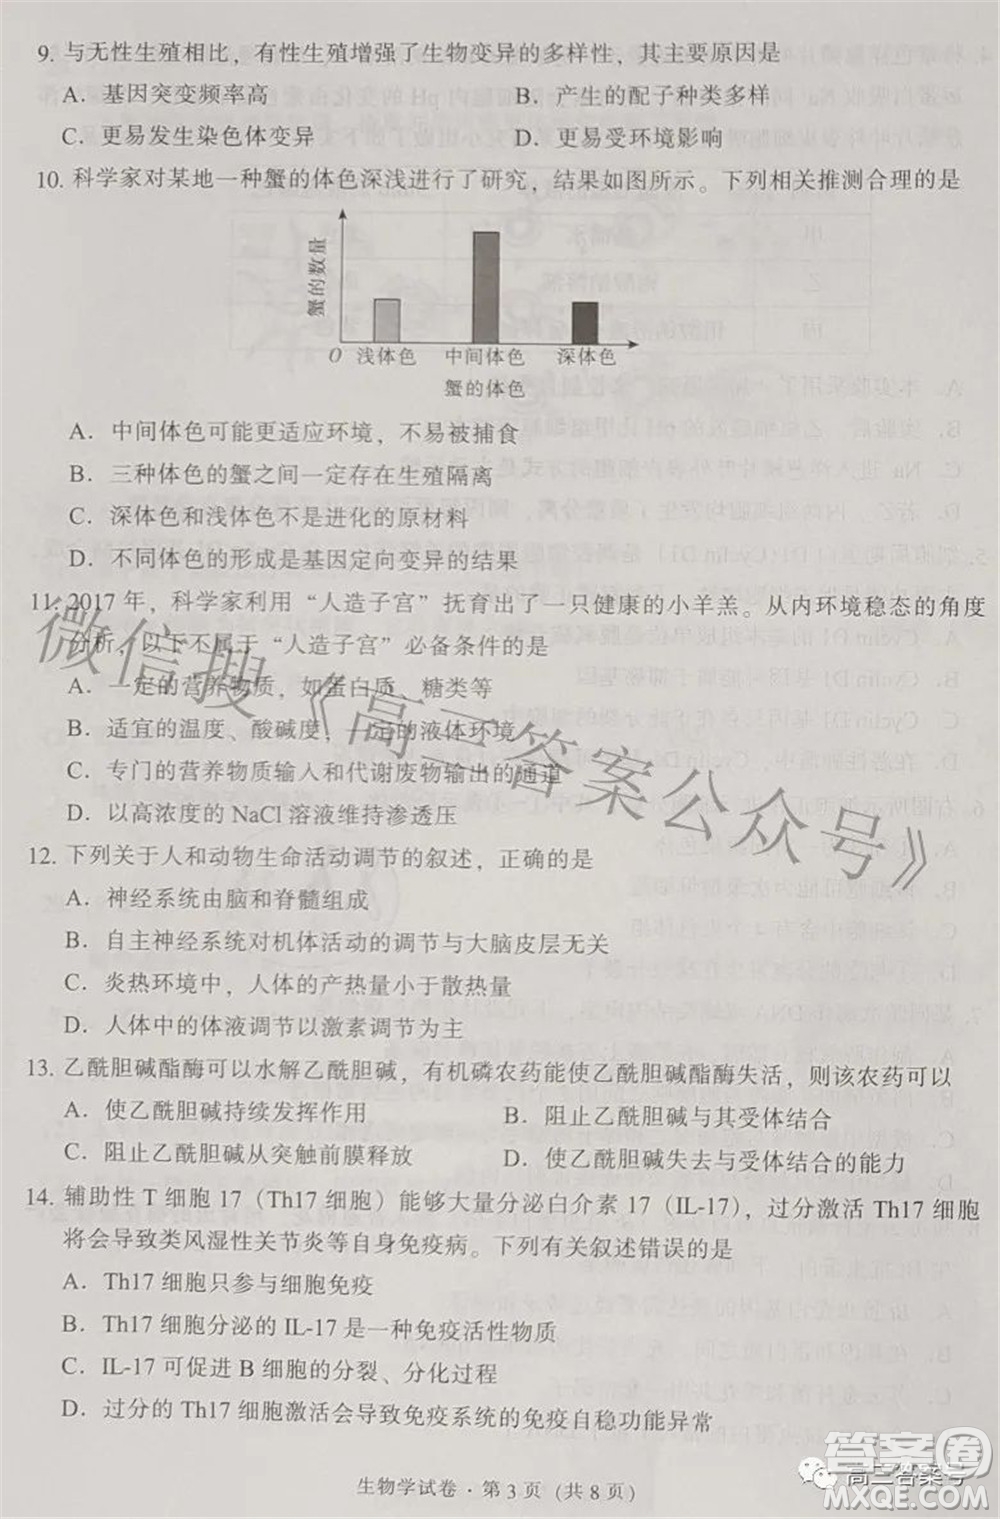 9. 与无性生殖相比，有性生殖增强了生物变异的多样性，其主要原因是
A．基因突变频率高 B．产生的配子种类多样
C．更易发生染色体变异 D．更易受环境影响
10. 科学家对某地一种蟹的体色深浅进行了研究，结果如图所示。下列相关推测合理的是
蟹的数量
O 浅体色 中间体色 深体色
蟹的体色
A．中间体色可能更适应环境，不易被捕食
B．三种体色的蟹之间一定存在生殖隔离
C．深体色和浅体色不是进化的原材料
D．不同体色的形成是基因定向变异的结果
11. 2017 年，科学家利用“人造子宫”抚育出了一只健康的小羊羔。从内环境稳态的角度
分析，以下不属于“人造子宫”必备条件的是
A．一定的营养物质，如蛋白质、糖类等
B．适宜的温度、酸碱度，一定的液体环境
C．专门的营养物质输入和代谢废物输出的通道
D．以高浓度的 NaCl 溶液维持渗透压
12. 下列关于人和动物生命活动调节的叙述，正确的是
A．神经系统由脑和脊髓组成
B．自主神经系统对机体活动的调节与大脑皮层无关
C．炎热环境中，人体的产热量小于散热量
D．人体中的体液调节以激素调节为主
13. 乙酰胆碱酯酶可以水解乙酰胆碱，有机磷农药能使乙酰胆碱酯酶失活，则该农药可以
A．使乙酰胆碱持续发挥作用 B．阻止乙酰胆碱与其受体结合
C．阻止乙酰胆碱从突触前膜释放 D．使乙酰胆碱失去与受体结合的能力
14. 辅助性 T 细胞 17（Th17 细胞）能够大量分泌白介素 17（IL-17），过分激活 Th17 细胞
将会导致类风湿性关节炎等自身免疫病。下列有关叙述错误的是
A．Th17 细胞只参与细胞免疫
B．Th17 细胞分泌的 IL-17 是一种免疫活性物质
C．IL-17 可促进 B 细胞的分裂、分化过程
D．过分的 Th17 细胞激活会导致免疫系统的免疫自稳功能异常
生物学试卷 · 第 3 页（共 8 页）
微信搜《高三答案公众号》
高三答案号
答案圈
MXQE.COM